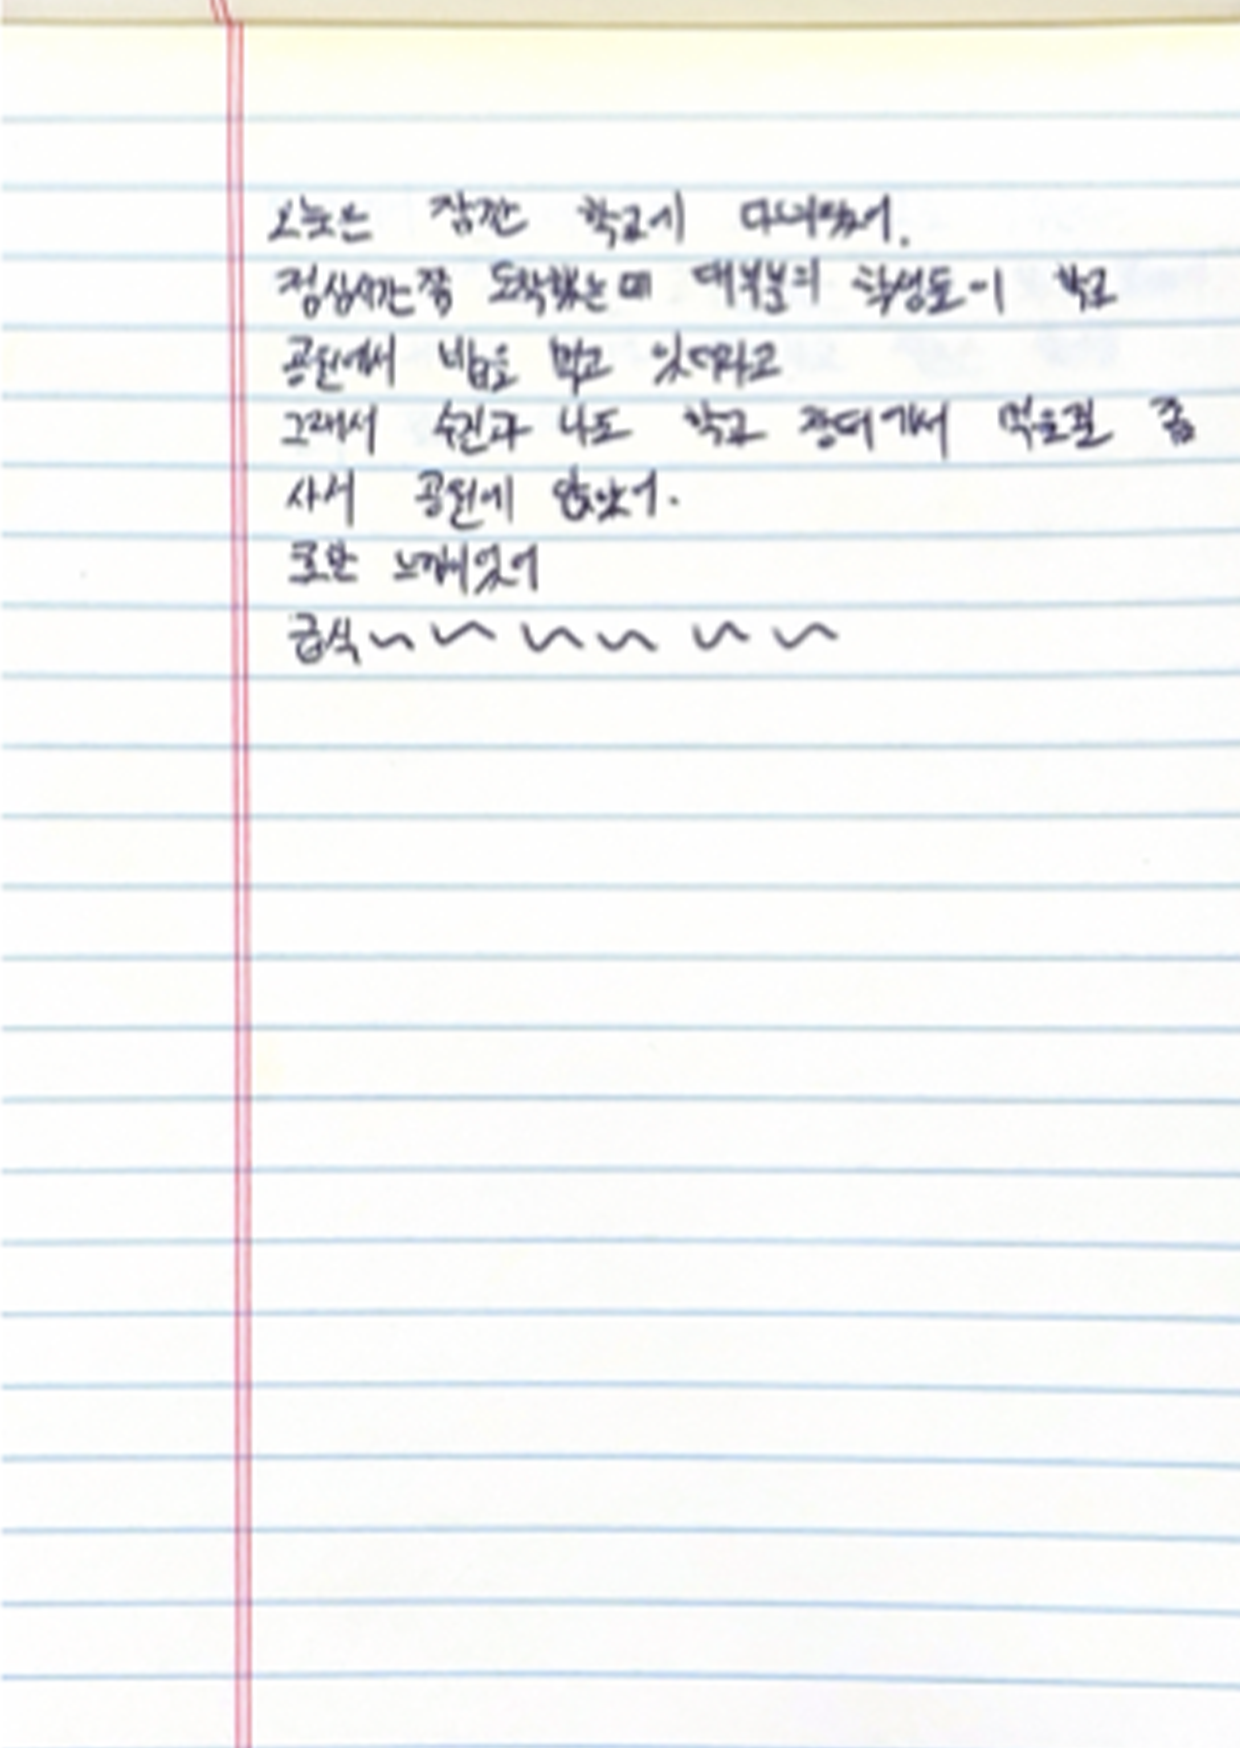 오늘은 잠깐 학교에 다녀왔어.
점심시간쯤 도착했는데 대부분의 학생들이 학교
공원에서 밥을 먹고 있더라고
그래서 수진과 나도 학교 장터가서 먹을걸 좀
사서 공원에 앉았어.
느낌있어
급식~~~~~~